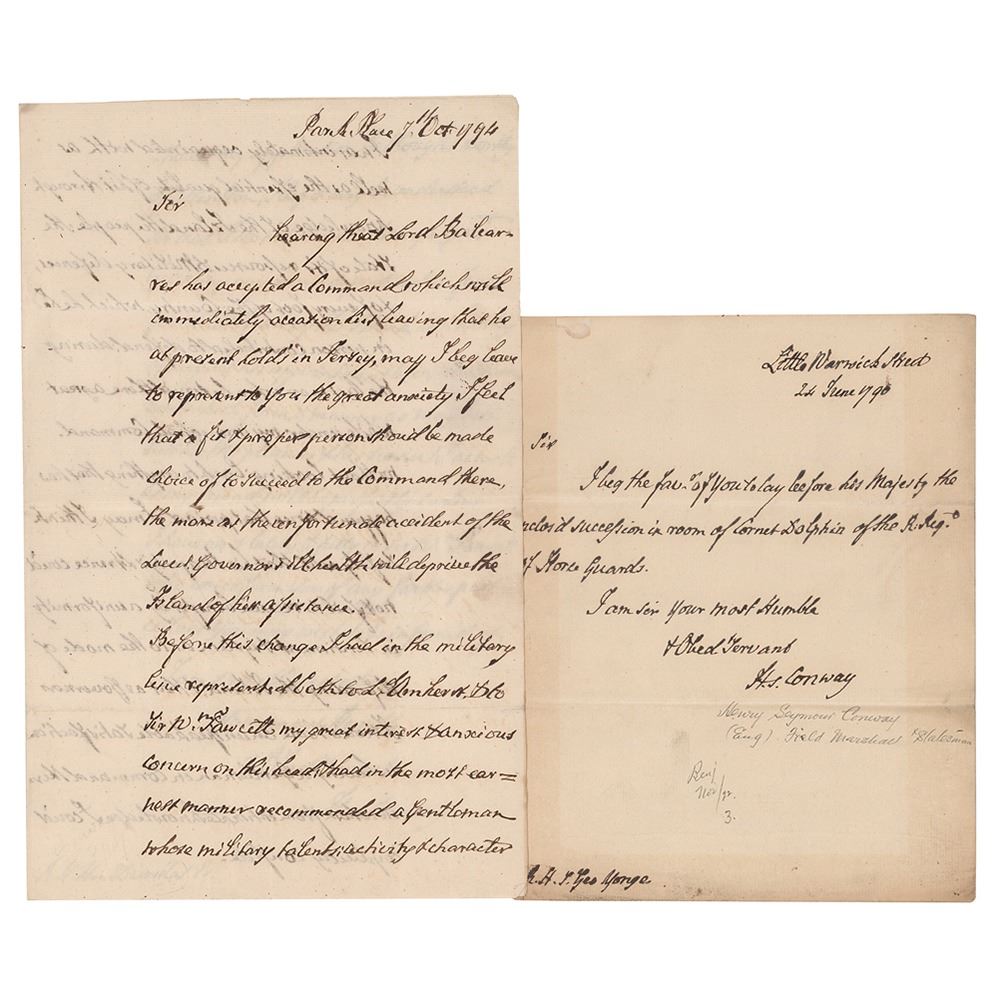 Park Place 7th Oct 1794
Sir
hearing that Lord Balcar=
res has accepted a Command which will
immediately occasion his leaving that he
at present holds in Jersey, may I beg leave
to represent to You the great anxiety I feel
that a fit & proper person should be made
choice of to succeed to the Command there,
the more as the unfortunate accident of the
Lieut. Governors ill health will deprive the
Island of his assistance.
Before this change I had in the military
line represented both to Ld. Amherst & to
Sir Wm. Fawcett my great interest & anxious
concern on this head & had in the most ear=
nest manner recommended a Gentleman
whose military talents, activity & character
Little Warwick Street
24 June 1790
Sir
I beg the favr. of You to lay before his Majesty the
nclos'd succession in room of Cornet Dolphin of the R. Regt.
of Horse Guards.
I am Sir Your most Humble
& Obed Servant
H. S. Conway
Henry Seymour Conway
(Eng) Field Marshall & Statesman
Benj
Nov/92.
3.
R. H. S. Geo Yonge